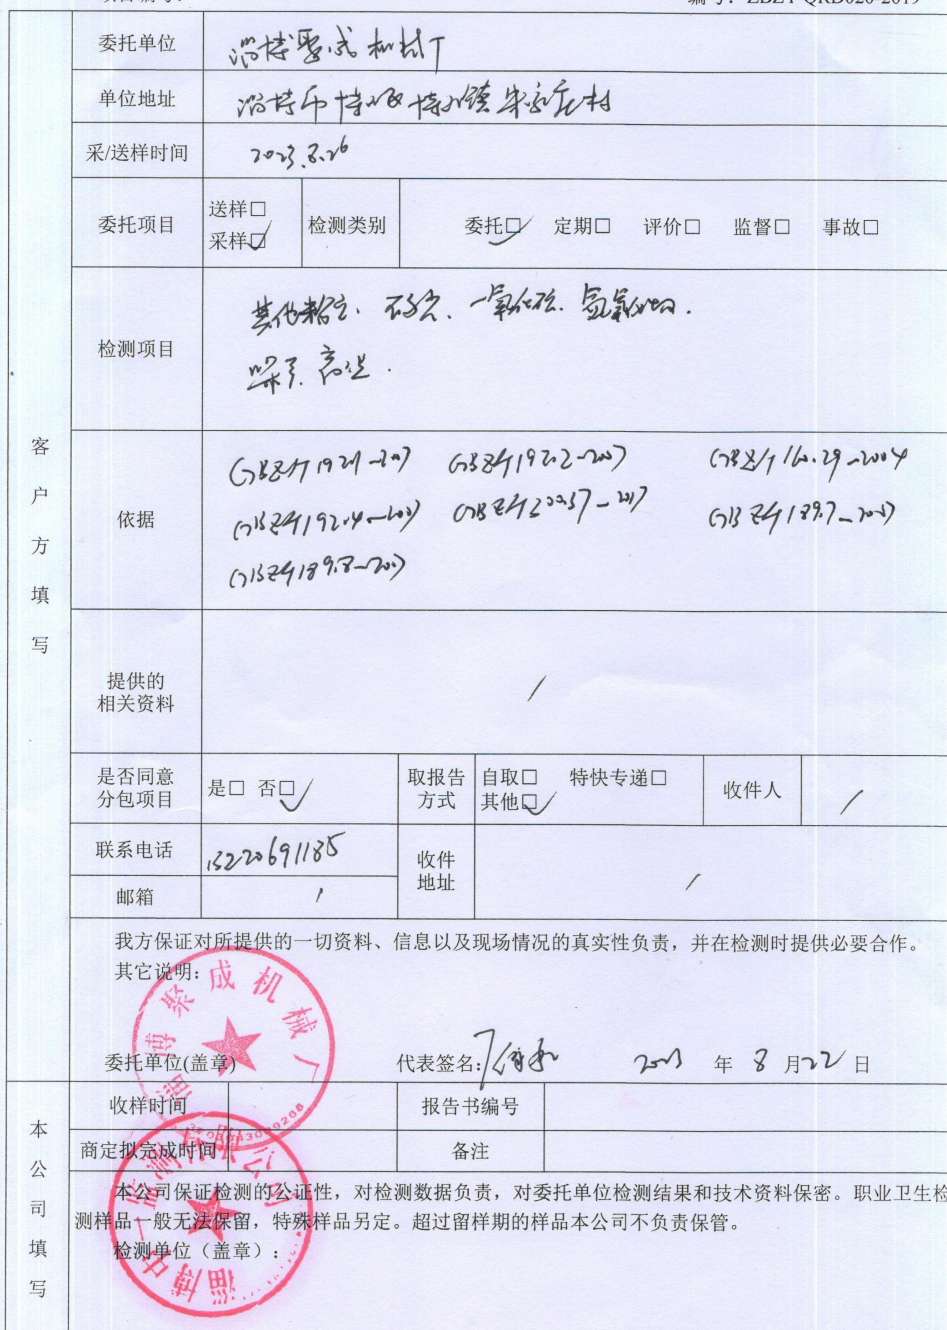 委托单位 淄博聚成机械厂
单位地址 淄博市博山区博山镇朱家庄村
采/送样时间 2023.8.26
委托项目 送样□ 采样☑ 检测类别 委托☑ 定期□ 评价□ 监督□ 事故□
检测项目 其他粉尘、一氧化碳、氮氧化物、
噪声、高温.
客户方填写
依据 GBZ/T192.1-2007 GBZ/T192.2-2007 GBZ/T160.29-2004
GBZ/T192.4-2007 GBZ/T300.37-2017 GBZ/T189.7-2007
GBZ/T189.8-2007
提供的
相关资料 /
是否同意
分包项目 是□ 否☑ 取报告
方式 自取□ 特快专递□
其他☑ 收件人 /
联系电话 15220691185
邮箱 / 收件
地址 /
我方保证对所提供的一切资料、信息以及现场情况的真实性负责，并在检测时提供必要合作。
其它说明：
淄博聚成机械厂
委托单位(盖章) 代表签名: 2023 年 8 月 22 日
本公司填写
收样时间 报告书编号
商定拟完成时间 备注
本公司保证检测的公证性，对检测数据负责，对委托单位检测结果和技术资料保密。职业卫生检
测样品一般无法保留，特殊样品另定。超过留样期的样品本公司不负责保管。
检测单位（盖章）: